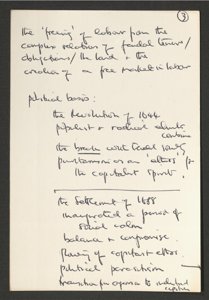 3
the 'freeing' of labour from the
complex relations of feudal tenure/
obligations/the land & the
creation of a free market in labour
political basis:
the Revolution of 1644
populist & radical elements
combine
the break with feudal
puritanism as an 'ethic' for
the capitalist spirit.
the Settlement of 1688
inaugurated a period of
calm
balance & compromise.
of capitalist
political
transition from agrarian to industrial
capitalism